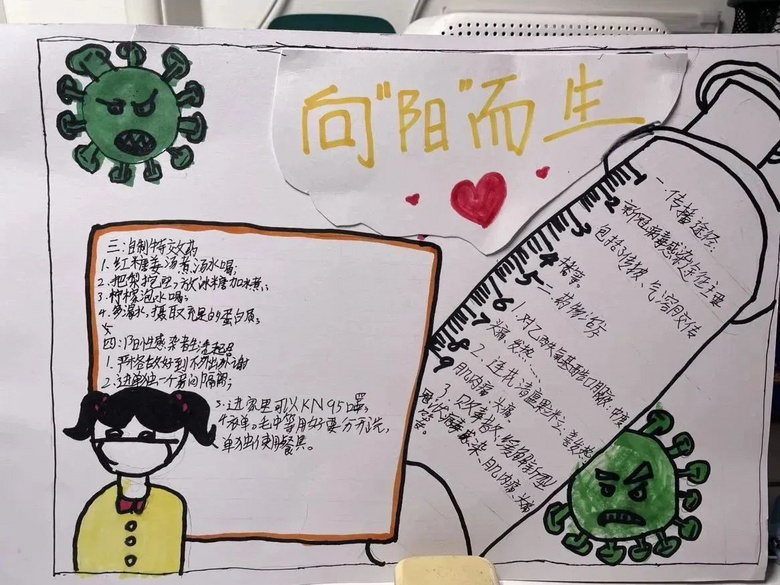 向"阳"而生
一、传播途径
新冠病毒感染途径主要
包括飞沫传播、气溶胶传
播等。
二、药物治疗
1.对乙酰氨基酚口服,
头痛、发热、
肌肉痛、头痛
2.连花清瘟
3.
感染、肌肉痛、头痛
三:自制特效药
1.红糖姜汤煮汤水喝;
2.把梨挖空,放冰糖加水煮;
3.柠檬泡水喝;
4.多喝水,摄取充足的蛋白质;
四:阳性感染者生活起居
1.严格做好到不外出
2.进单独一个房间隔离;
3.进家里可以KN95罩,
床单、毛巾等用好要分开洗,
单独使用餐具。
1
2
3
4
5
6
7
8
9